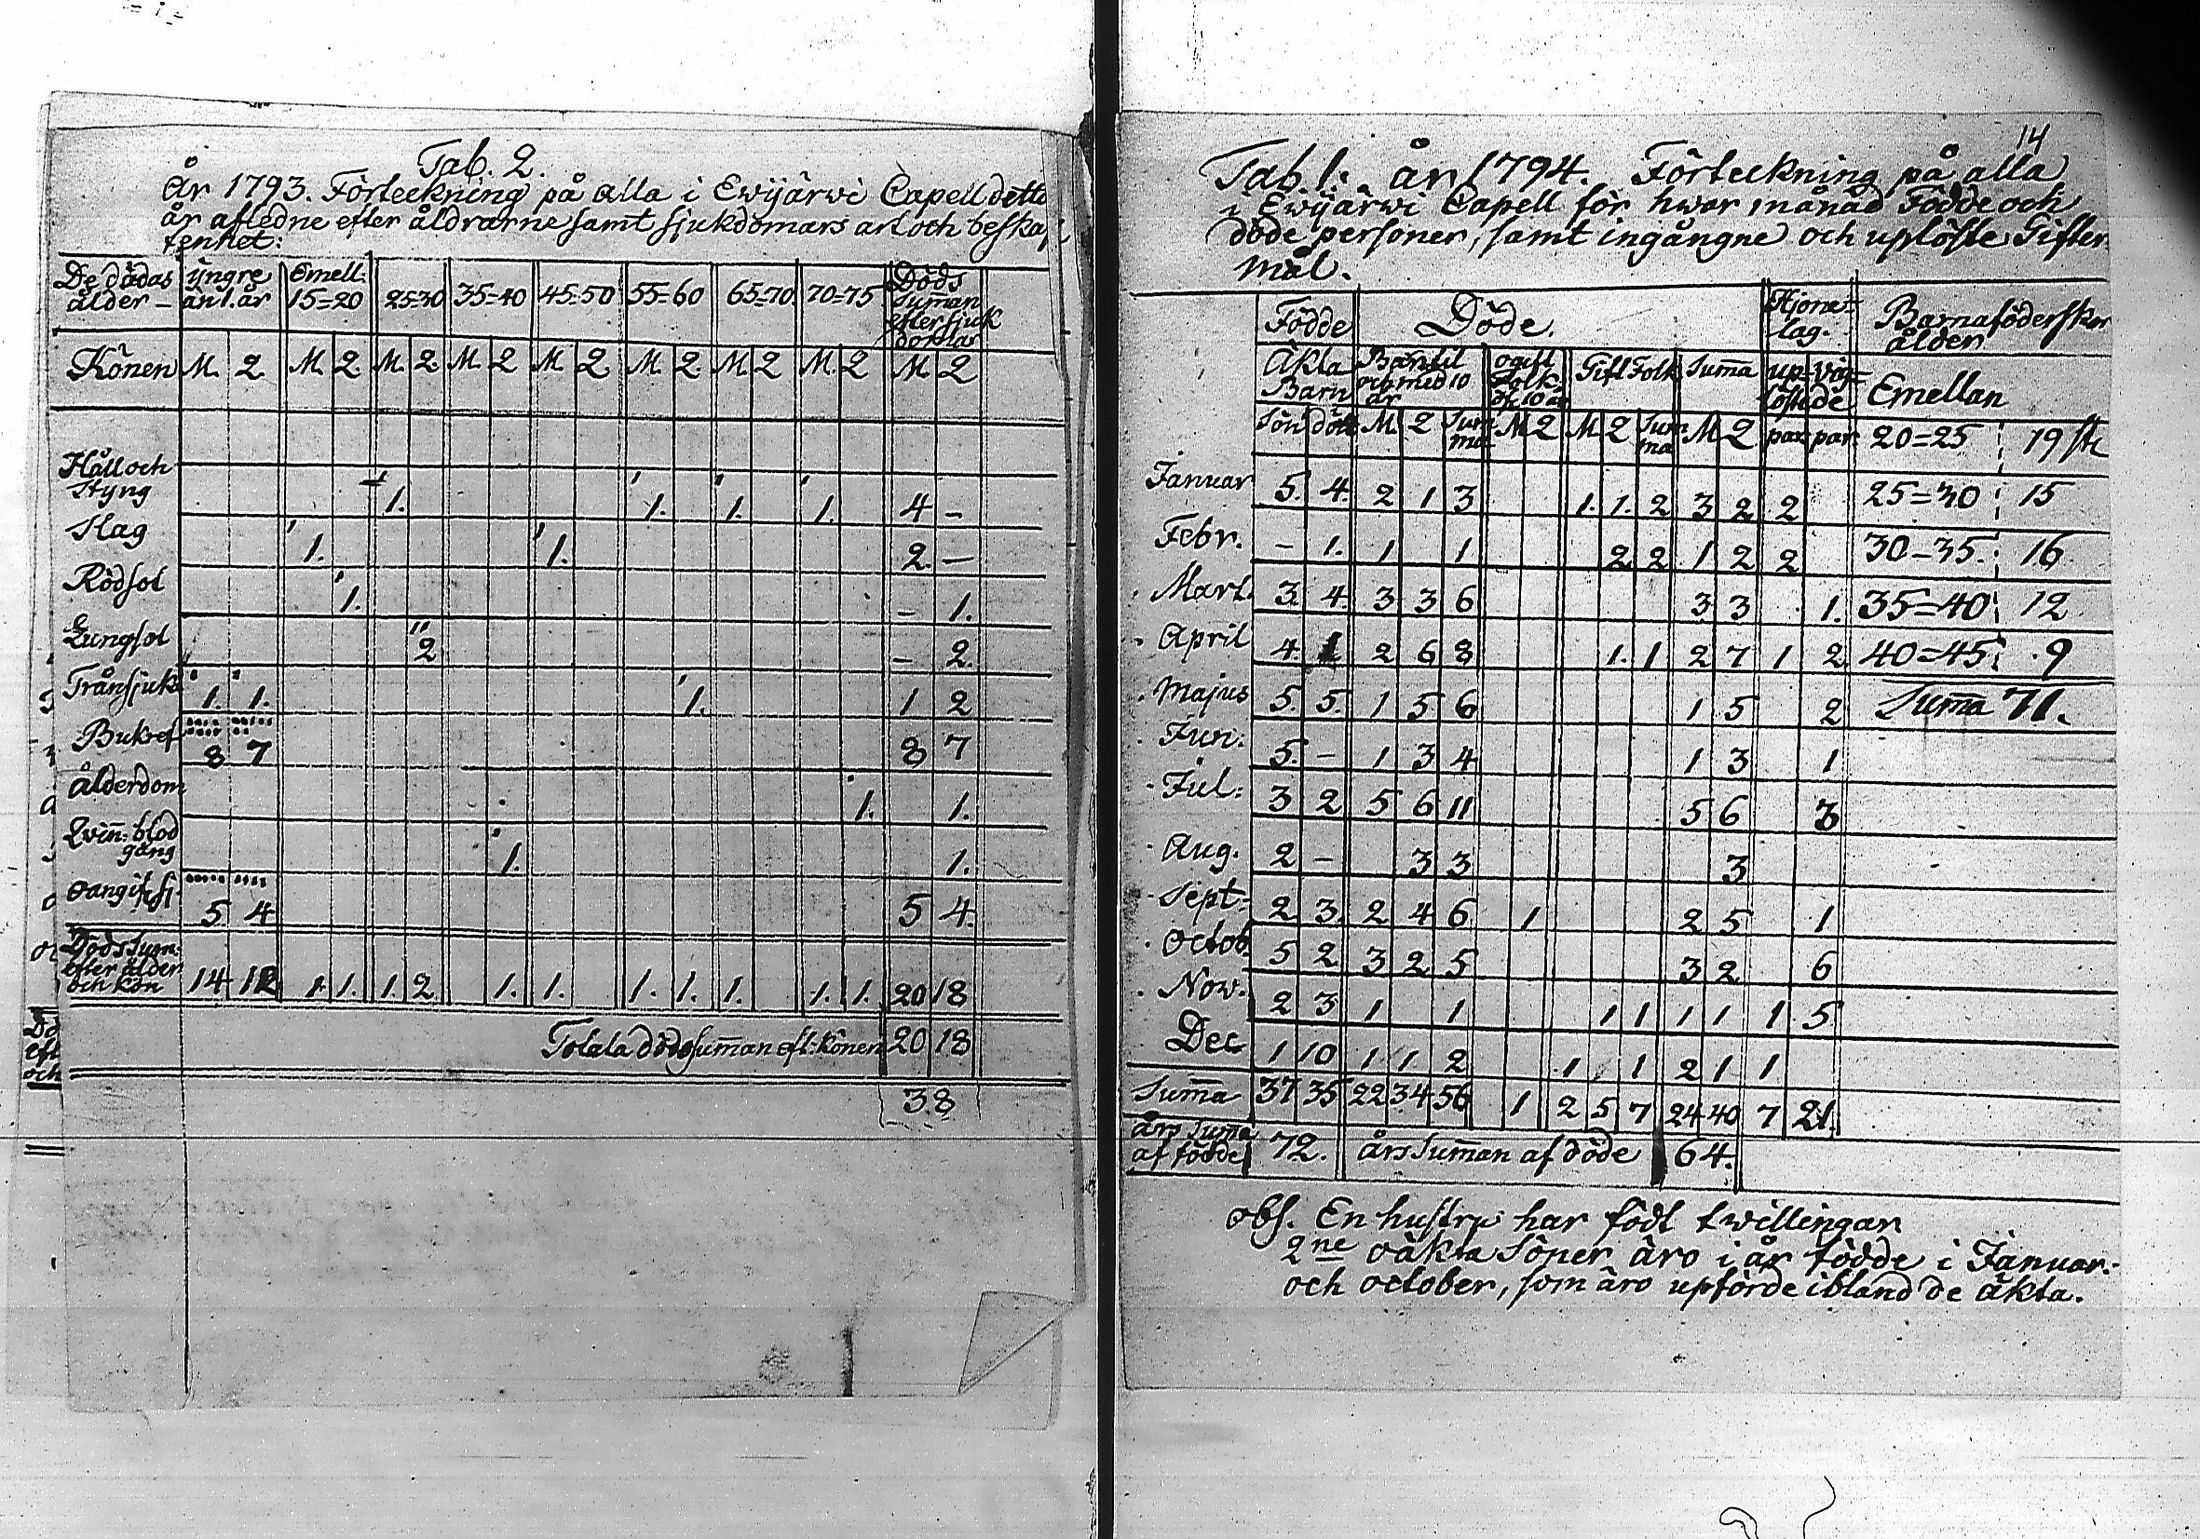 Tab. 2.
År 1793. Förteckning på alla i Ewijärwi Capell detta
år afledne efter åldrarne samt sjukdomars art och beskaf
fenhet:
De dödas ålder – yngre än 1. år Emell. 15=20 25=30 35=40 45=50 55=60 65=70 70=75 Döds suman efter sjuk domar
Könen M. Q. M. Q. M. Q. M. Q M Q M. Q. M Q M. Q M Q
Håll och Styng 1. 1. 1. 1. 4 –
Slag 1. 1. 2. –
Rödsot 1. – 1.
Lungsot 2 – 2.
Trånsjuka 1. 1. 1. 1 2
Bukref 8 7 8 7
Ålderdom 1. 1.
Qvin: blod gång 1. 1.
oangif: sj. 5 4 5 4
Döds Sum: efter ålder och kön 14 12 1. 1. 1. 2 1. 1. 1. 1. 1. 1. 1. 20 18
Totala döds suman eft: könen 20 18
38
14
Tab. 1. år 1794. Förteckning på alla
i Ewijärwi Capell för hwar månad Födde och
döde personer, samt ingångne och uplöste Gifter
mål.
Födde Döde. Hjone= lag. Barnaföderskor ålder
Äkta Barn Barn til och med 10 år ogift Folk öf. 10 år Gift Folk Suma up= löste vig= de Emellan
Sön dött M Q Sum ma M Q M Q Sum ma M Q par par 20=25 19 st
Januar 5. 4. 2 1 3 1. 1. 2 3 2 2 25=30 15
Febr. – 1. 1 1 2 2 1 2 2 30–35. 16
Mart. 3. 4. 3 3 6 3 3 1. 35=40 12
April 4. 1 2 6 8 1. 1 2 7 1 2 40=45 9
Majus 5. 5. 1 5 6 1 5 2 Suma 71.
Jun. 5. – 1 3 4 1 3 1
Jul: 3 2 5 6 11 5 6 3
Aug. 2 – 3 3 3
Sept= 2 3. 2 4 6 1 2 5 1
Octob. 5 2 3 2 5 3 2 6
Nov. 2 3 1 1 1 1 1 1 1 5
Dec 1 10 1 1 2 1 1 2 1 1
Suma 37 35 22 34 56 1 2 5 7 24 40 7 21.
års Suma af födde 72. års Suman af döde 64.
obs. En hustru har födt twillingar
2ne oäkta Söner äro i år födde i Januar.
och october, som äro upförde ibland de äkta.